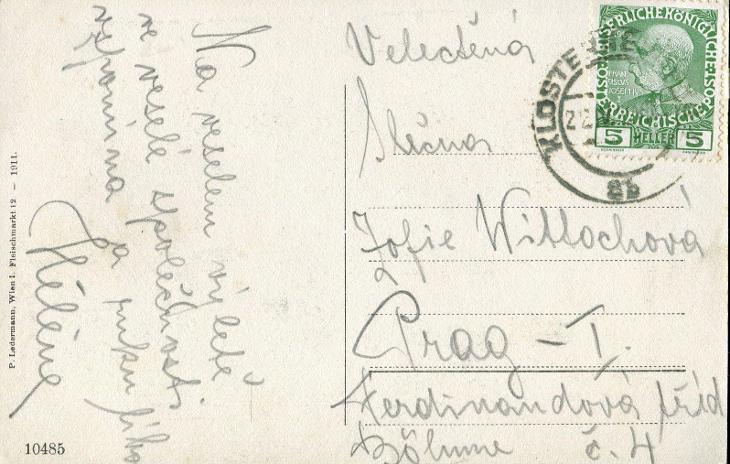 Na veselém výletě
ve veselé společnosti
vzpomíná a ruku líbá
Hélène
P. Ledermann, Wien I. Fleischmarkt 12 – 1911.
10485
Velectěná
Slečna
Žofie Wittochová
Prag – I.
Ferdinandova tříd
Böhmen č. 4
KAISERLICHE KÖNIGLICHE POST
ÖSTERREICHISCHE
5 HELLER 5
KLOSTERNE
8b